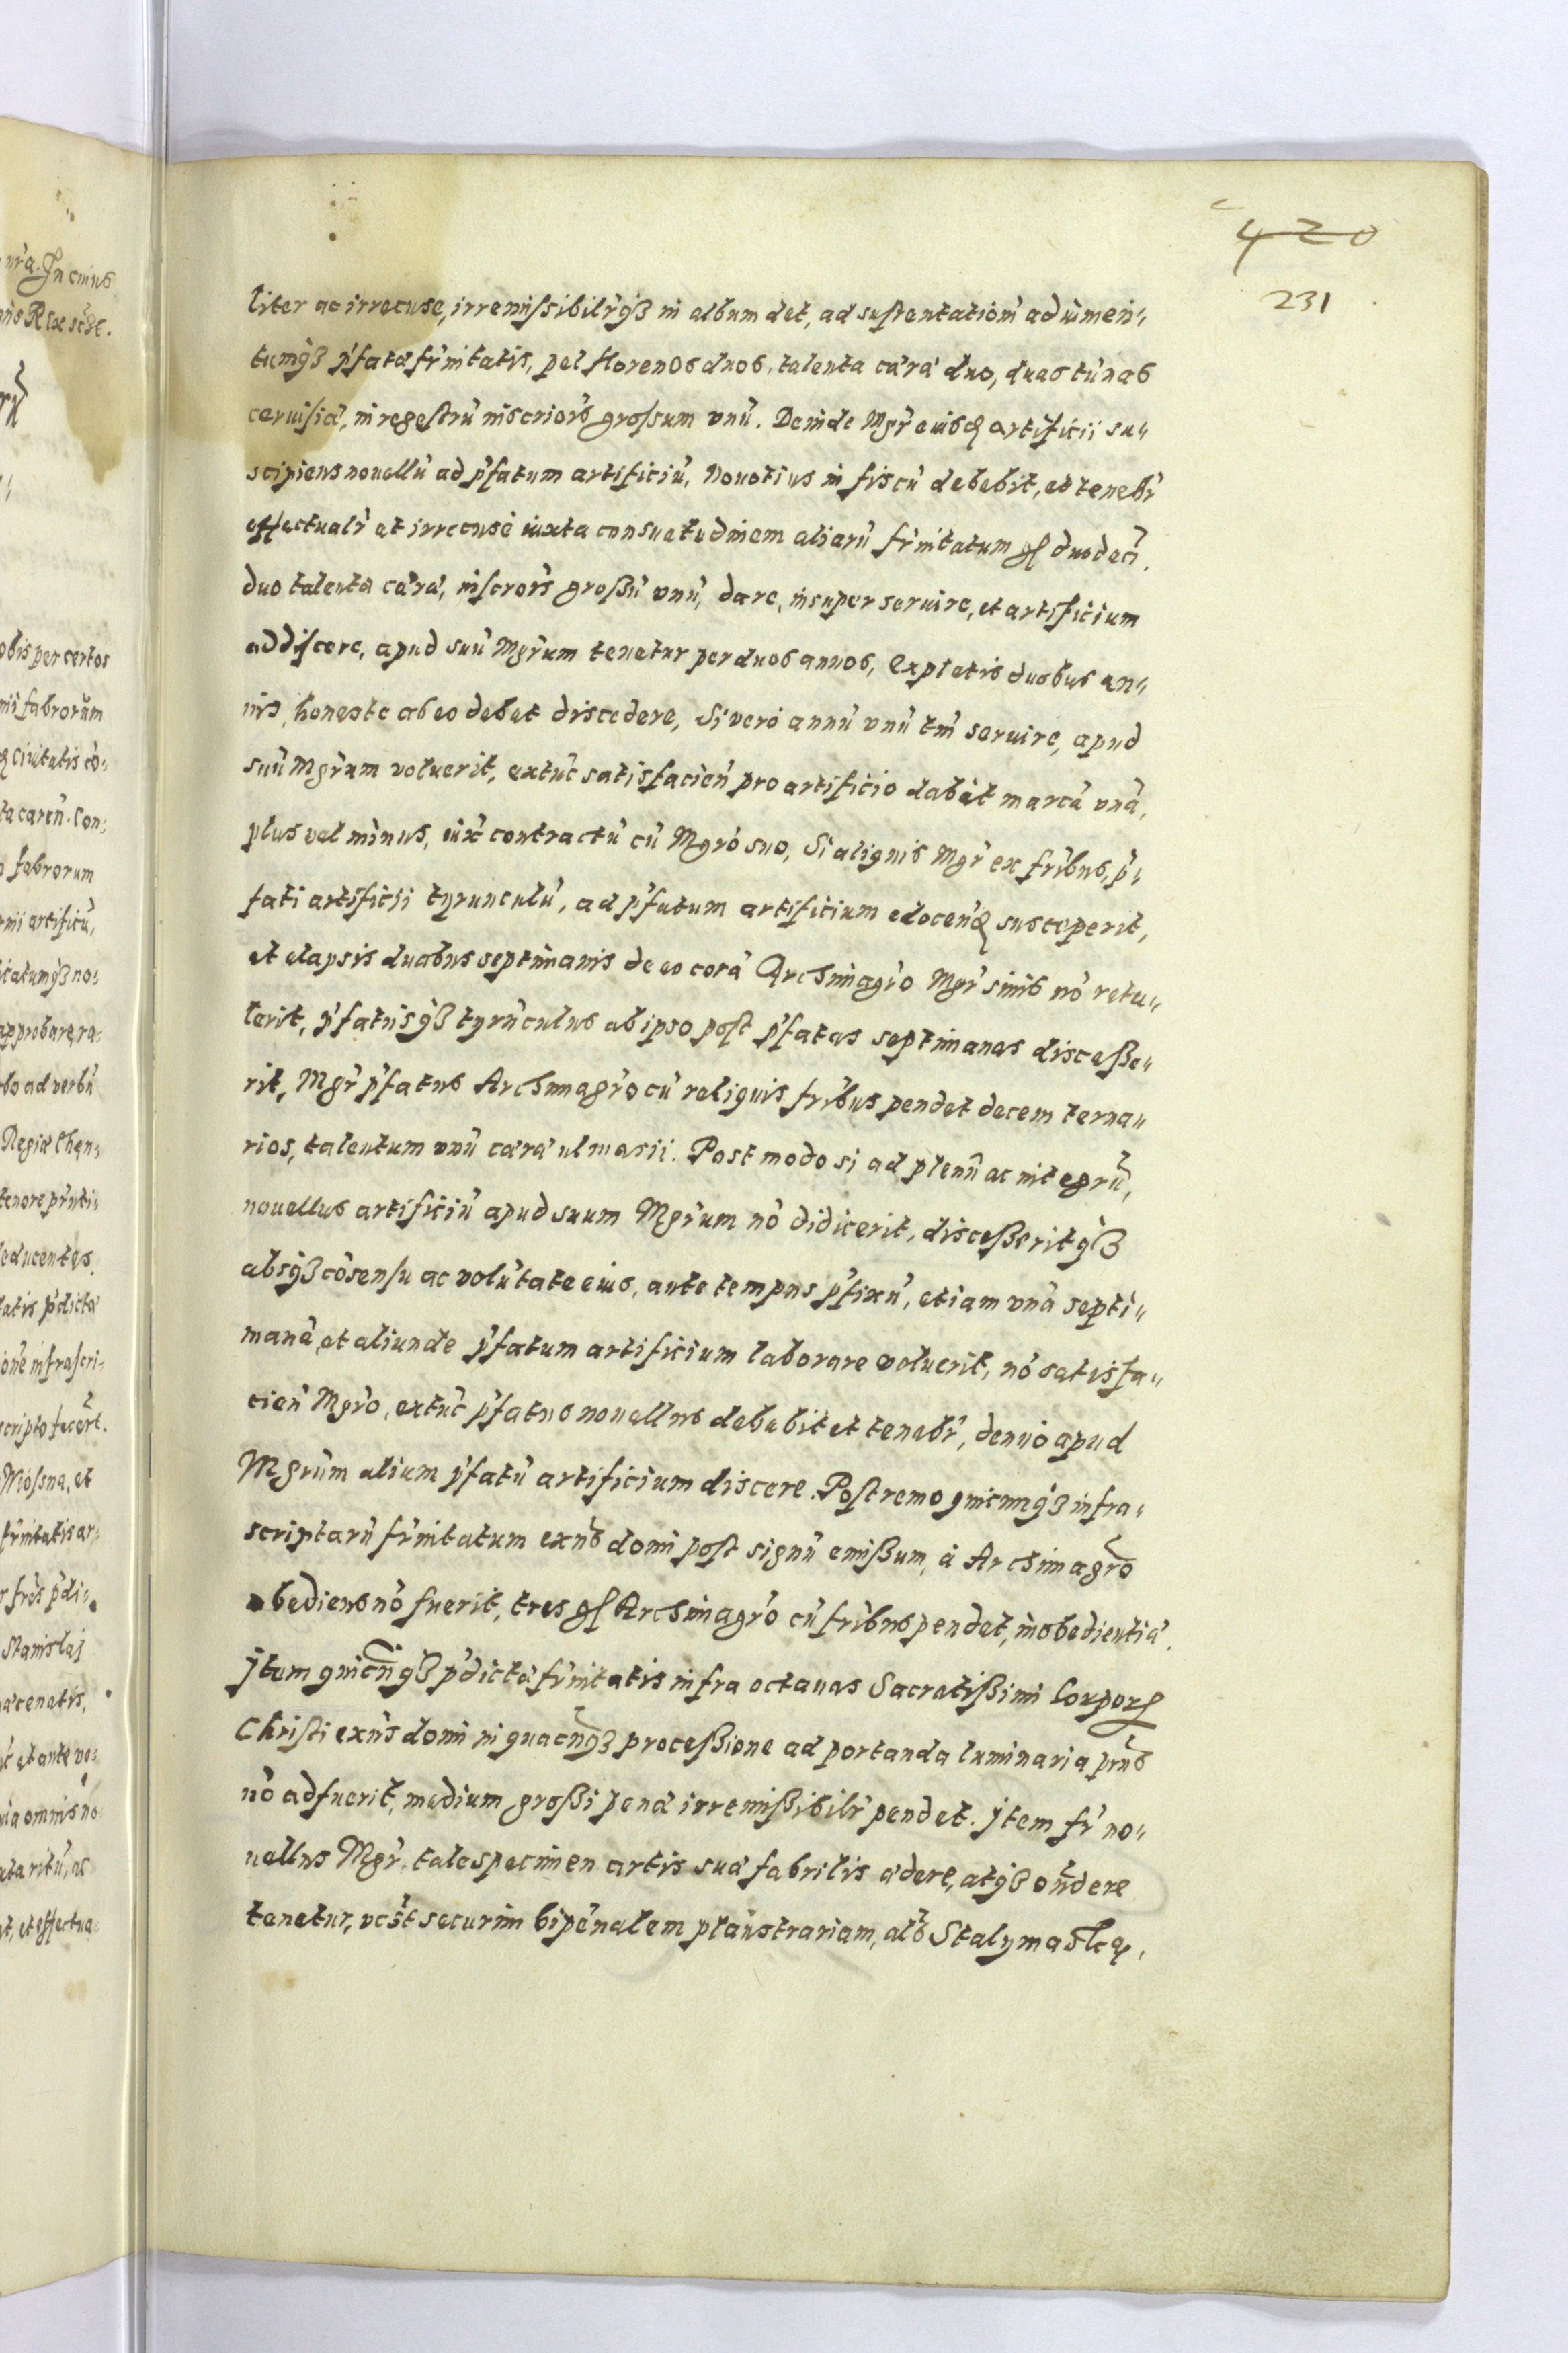 420
231
liter ac irrecuse, irremissibilr̃q₃ in album det, ad sustentationẽ adiumen„
tumq₃ p̃fatæ fr̃nitatis, pel florenos duos, talenta cæræ duo, duas tũnas
ceruisiæ, in regestrũ inscriõis grossum vnũ. Deinde Mgr̃ eiusd artificii su„
scipiens nouellũ ad p̃fatum artificiũ, Nouotius in fiscũ debebit, et tenebr̃
effectualr̃ et irrecuse iuxta consuetudinem aliarũ fr̃nitatum gꝭ duodecĩ.
duo talenta cæræ, inscrõis großũ vnũ, dare, insuper seruire, et artificium
addiscere, apud suũ Mgr̃um tenetur per duos annos, Expletis duobus an„
nis, honeste ab eo debet discedere, Si vero annũ vnũ tm̃ seruire, apud
suũ Mgr̃um voluerit, extũc satisfacieñ pro artificio dabit marcã vnã,
plus vel minus, iux̃ contractũ cũ Mgr̃o suo, Si aliquis Mgr̃ ex fr̃ibus, p̃„
fati artificii tyrunculũ, ad p̃fatum artificium edocend susceperit,
et elapsis duabus septimanis de eo corã Archimagr̃o Mgr̃ simb nõ retu„
lerit, p̃fatusq₃ tyrũculus ab ipso post p̃fatas septimanas disceße„
rit, Mgr̃ p̃fatus Archimagr̃o cũ reliquis fr̃ibus pendet decem terna„
rios, talentum vnũ cæræ ul masii. Postmodo si ad plenũ ac integrũ,
nouellus artificiũ apud suum Mgr̃um nõ didicerit, disceßeritq₃
absq₃ cõsensu ac volũtate eius, ante tempus p̃fixũ, etiam vnã septi„
manã, et aliunde p̃fatum artificium laborare voluerit, nõ satisfa„
cieñ Mgr̃o, extũc p̃fatus nouellus debebit et tenebr̃, denuo apud
Mgr̃um alium p̃fatũ artificium discere. Postremo quicunq₃ infra„
scriptarũ fr̃nitatum exñs domi post signũ emißum, à Archimagr̃o
obediens nõ fuerit, tres gꝭ Archimagr̃o cũ fr̃ibus pendet, inobedientiæ.
jtem quicũq₃ p̃dictæ fr̃nitatis infra octauas Sacratißimi Corporꝭ
Christi exñs domi in quacũq₃ proceßione ad portanda luminaria pr̃ns
nõ adfuerit, medium großi penæ irremißibilr̃ pendet. jtem fr̃ no„
uellus Mgr̃. tale specimen artis suæ fabrilis ædere, atq₃ oñdere
tenetur, vcst̃ securim bipẽnalem plaustrariam, als̃ Stalymaslcą.